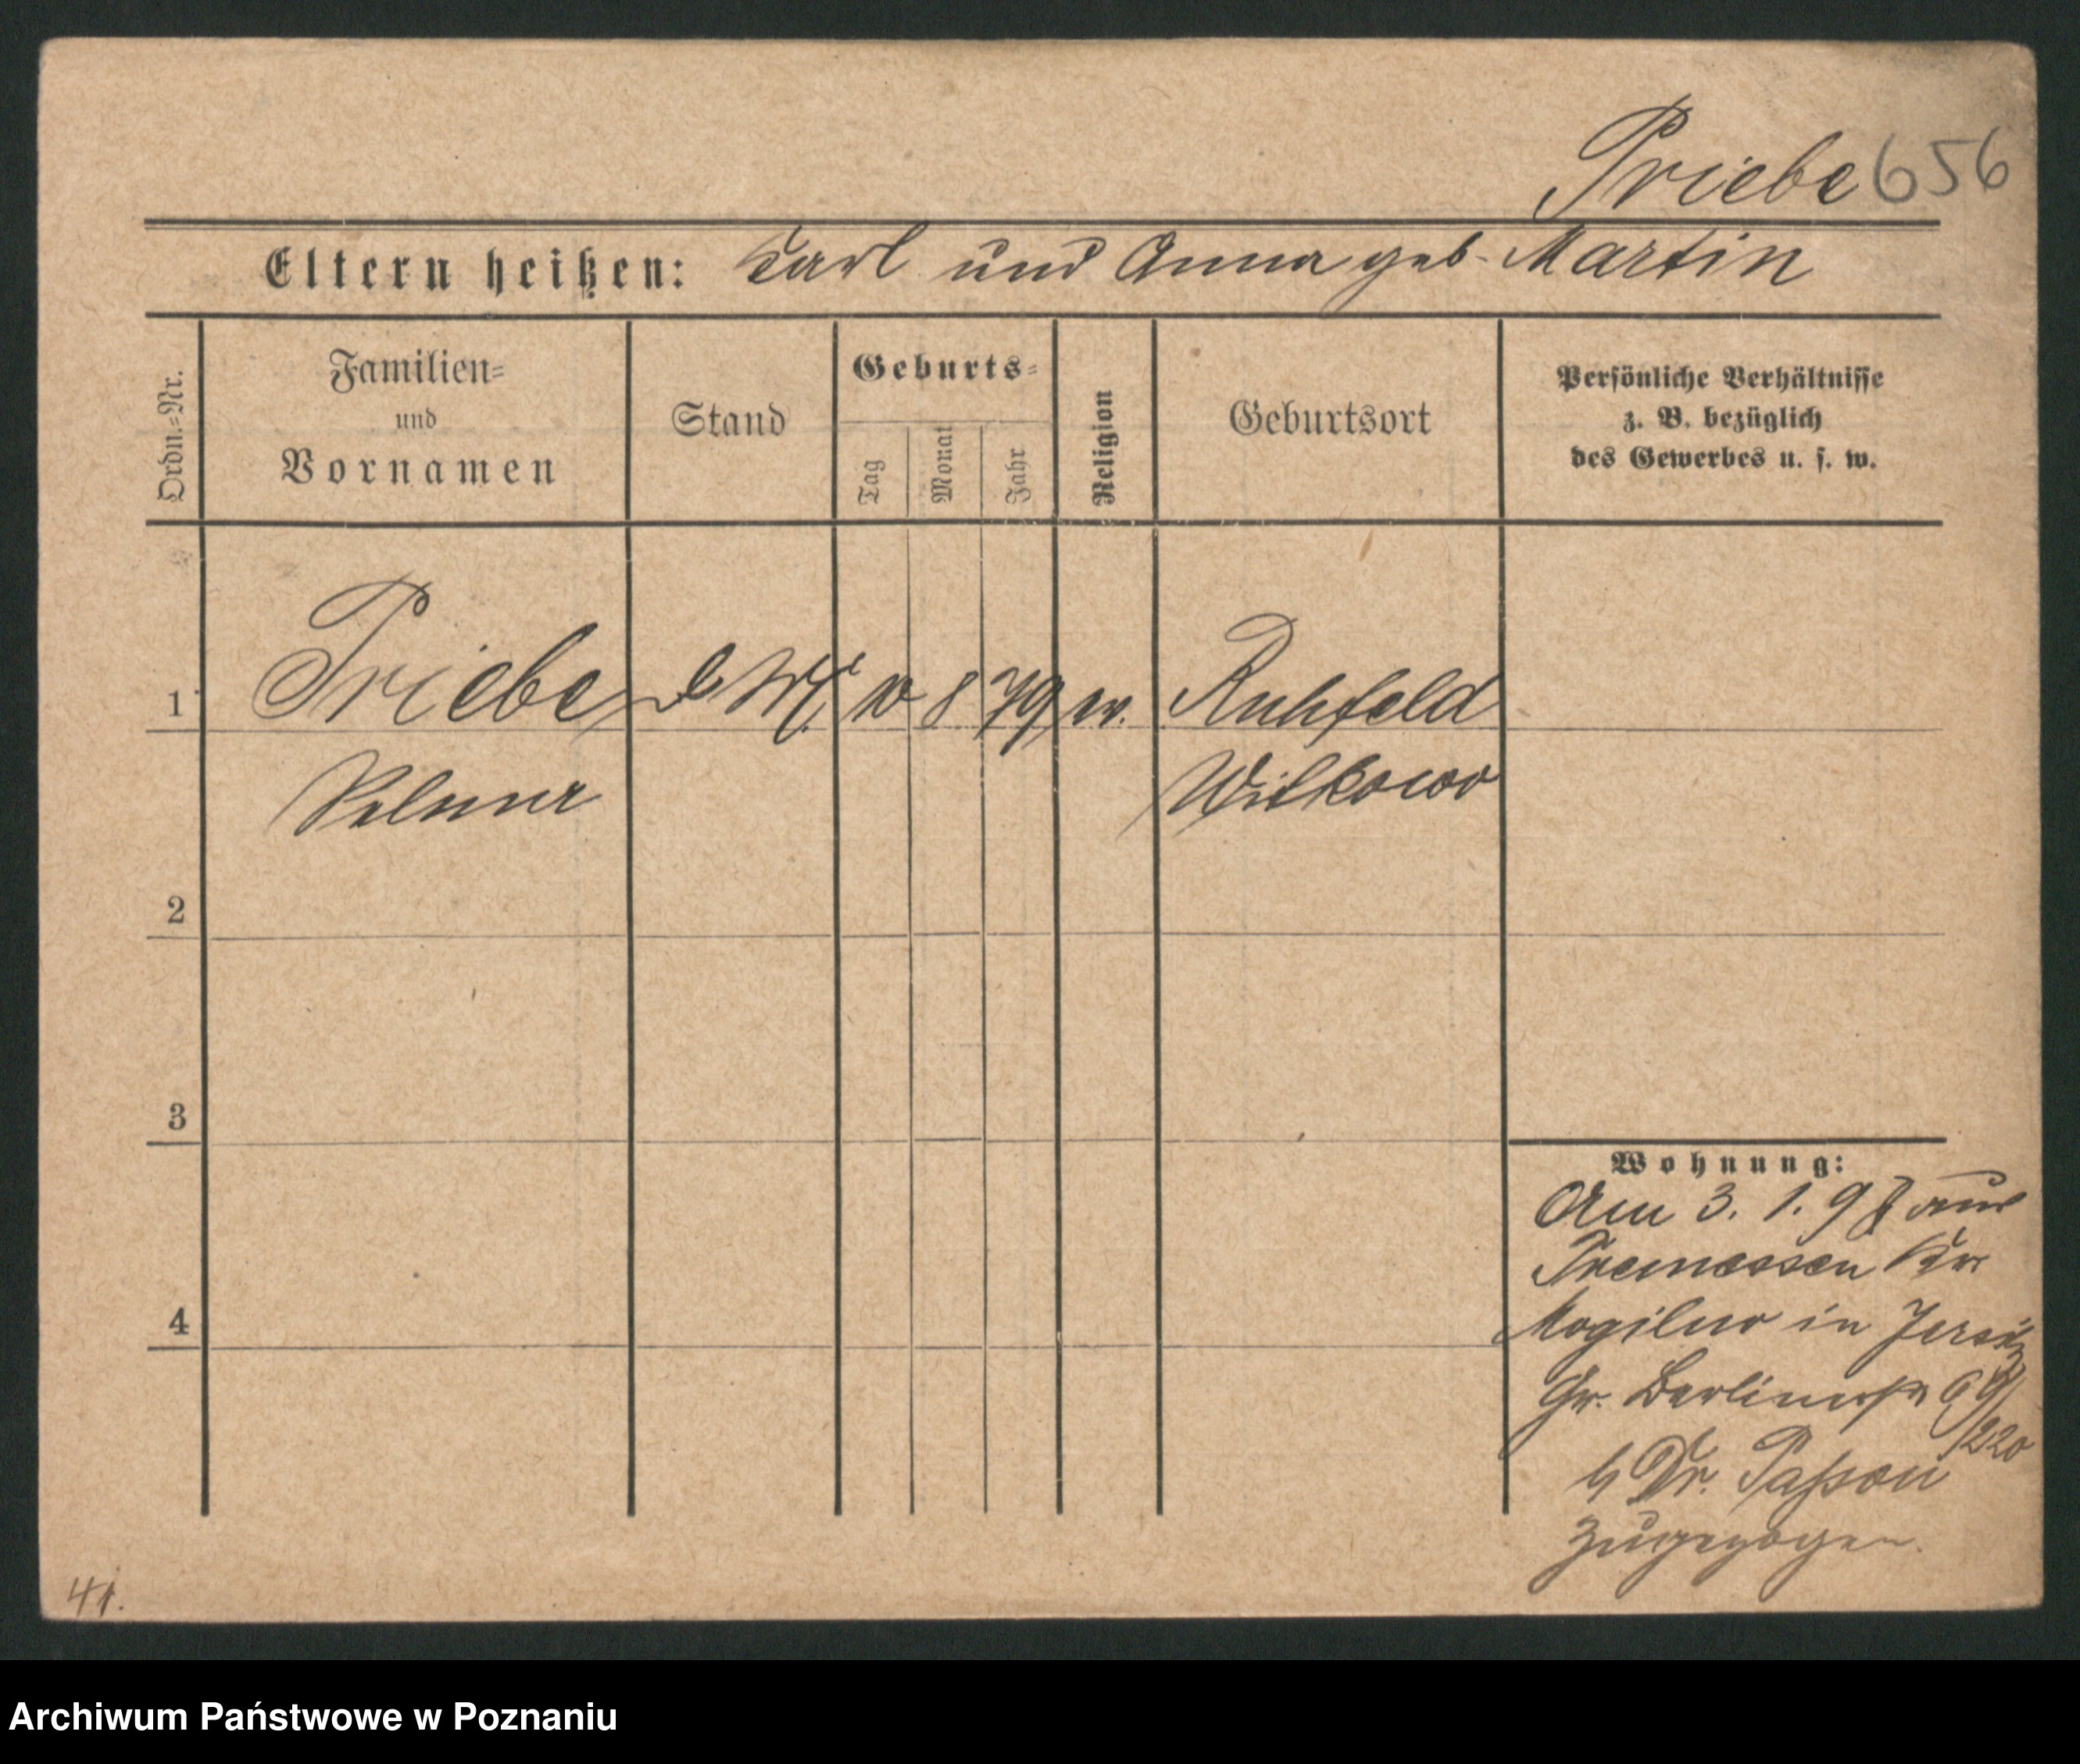 Priebe 656
Eltern heißen: Karl und Anna geb. Martin
Ordn.=Nr.
Familien=
und
Vornamen
Stand
Geburts=
Tag
Monat
Jahr
Religion
Geburtsort
Persönliche Verhältnisse
z. B. bezüglich
des Gewerbes u. s. w.
1 Priebe 10 8 79 ev. Ruhfeld
Selma Witkowo
2
3
4
Wohnung:
Am 3. 1. 98 aus
Tremessen Kr.
Mogilno in Jersitz
Gr. Berlinerstr 69/
220
b Dr. Passon
zugezogen.
41.
Archiwum Państwowe w Poznaniu